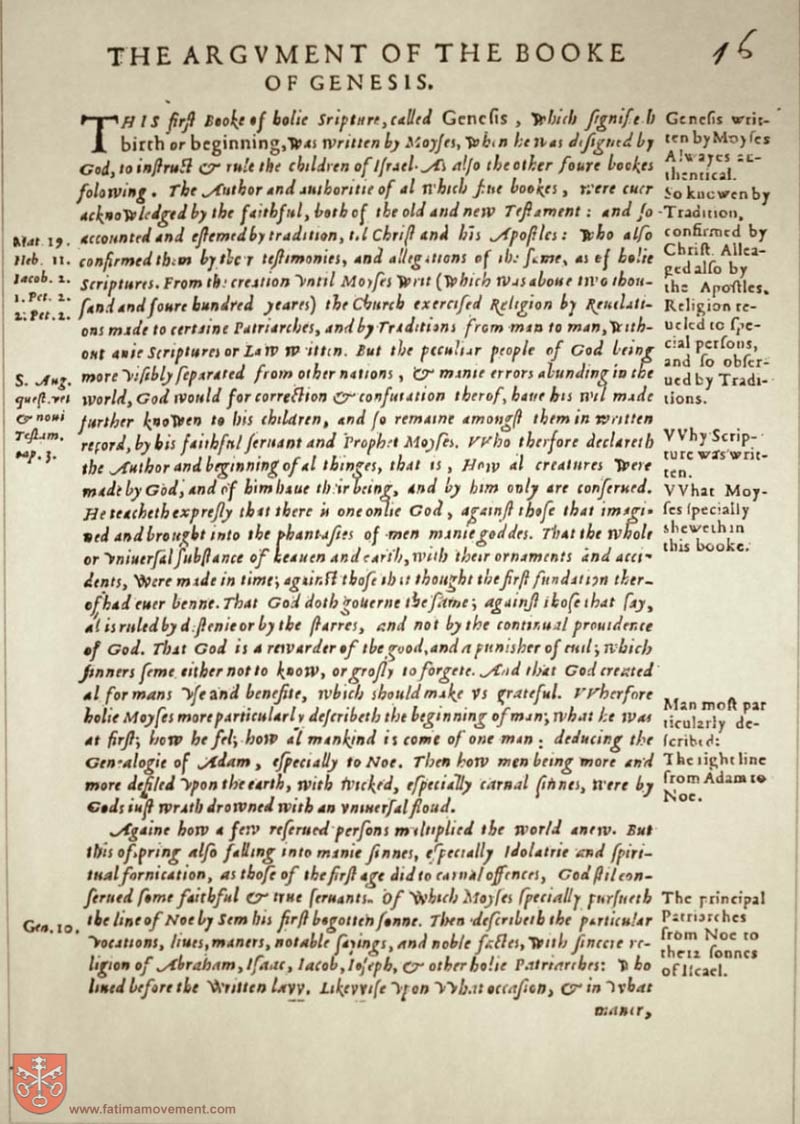 THE ARGVMENT OF THE BOOKE
OF GENESIS.
16
THIS first Booke of holie Sripture, called Genesis, which signifieth
birth or beginning, was written by Moyses, when he was disigned by
God, to instruct & rule the children of Israel. As also the other foure bookes
folowing. The Author and authoritie of al which fiue bookes, were euer
acknowledged by the faithful, both of the old and new Testament: and so
accounted and estemed by tradition, til Christ and his Apostles: who also
confirmed them by their testimonies, and allegations of the same, as of holie
Scriptures. From the creation vntil Moyses writ (which was aboue two thou-
sand and foure hundred yeares) the Church exercised Religion by Reuelati-
ons made to certaine Patriarches, and by Traditions from man to man, with-
out anie Scriptures or Law written. But the peculiar people of God being
more visibly separated from other nations, & manie errors abunding in the
world, God would for correction & confutation therof, haue his wil made
further knowen to his children, and so remaine amongst them in written
record, by his faithful seruant and Prophet Moyses. VVho therfore declareth
the Author and beginning of al thinges, that is, How al creatures were
made by God, and of him haue their being, and by him only are conserued.
He teacheth expresly that there is one onlie God, against those that imagi-
ned and brought into the phantasies of men manie goddes. That the whole
or vniuersal substance of heauen and earth, with their ornaments and acci-
dents, were made in time; against those that thought the first fundation ther-
of had euer benne. That God doth gouerne the same; against those that say,
al is ruled by destenie or by the starres, and not by the continual prouidence
of God. That God is a rewarder of the good, and a punisher of euil; which
sinners seme either not to know, or grosly to forgete. And that God created
al for mans vse and benefite, which should make vs grateful. VVherfore
holie Moyses more particularly describeth the beginning of man; what he was
at first; how he fel; how al mankind is come of one man: deducing the
Genealogie of Adam, especially to Noe. Then how men being more and
more defiled vpon the earth, with wicked, especially carnal sinnes, were by
Gods iust wrath drowned with an vniuersal floud.
Againe how a few reserued persons multiplied the world anew. But
this ofspring also falling into manie sinnes, especially Idolatrie and spiri-
tual fornication, as those of the first age did to carnal offences, God stil con-
serued some faithful & true seruants. Of which Moyses specially pursueth
the line of Noe by Sem his first begotten sonne. Then describeth the particular
vocations, liues, maners, notable sayings, and noble factes, with sincere re-
ligion of Abraham, Isaac, Iacob, Ioseph, & other holie Patriarches: who
liued before the written lavv. Likevvise vpon vvhat occasion, & in vvhat
maner,
Mat. 19.
Heb. 11.
Iacob. 2.
1. Pet. 2.
2. Pet. 2.
S. Aug.
quest. vet
& noui
Testam.
cap. 3.
Gen. 10.
Genesis writ-
ten by Moyses
Alwayes au-
thentical.
So knowen by
Tradition,
confirmed by
Christ. Allea-
ged also by
the Apostles.
Religion re-
ueled to spe-
cial persons,
and so obser-
ued by Tradi-
tions.
VVhy Scrip-
ture was writ-
ten.
VVhat Moy-
ses specially
sheweth in
this booke.
Man most par
ticularly de-
scribed:
The right line
from Adam to
Noe.
The principal
Patriarches
from Noe to
the 12 sonnes
of Israel.
www.fatimamovement.com